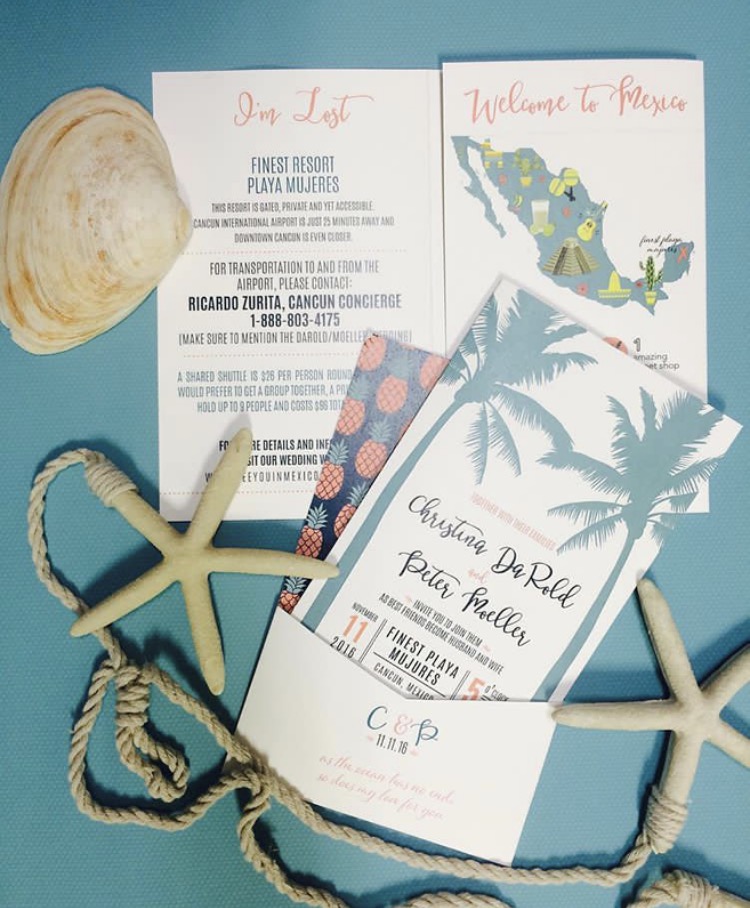 I'm Lost
FINEST RESORT
PLAYA MUJERES
THIS RESORT IS GATED, PRIVATE AND YET ACCESSIBLE.
CANCUN INTERNATIONAL AIRPORT IS JUST 25 MINUTES AWAY AND
DOWNTOWN CANCUN IS EVEN CLOSER.
FOR TRANSPORTATION TO AND FROM THE
AIRPORT, PLEASE CONTACT:
RICARDO ZURITA, CANCUN CONCIERGE
1-888-803-4175
(MAKE SURE TO MENTION THE DAROLD/MOELLER WEDDING)
A SHARED SHUTTLE IS $26 PER PERSON ROUND
WOULD PREFER TO GET A GROUP TOGETHER, A
HOLD UP TO 9 PEOPLE AND COSTS $96
MORE DETAILS AND
VISIT OUR WEDDING
EEYOUINMEXICO
Welcome to Mexico
finest playa
mujeres
1
amazing
shop
TOGETHER WITH THEIR FAMILIES
Christina DaRold
and
Peter Moeller
INVITE YOU TO JOIN THEM
AS BEST FRIENDS BECOME HUSBAND AND WIFE
NOVEMBER
11
2016
FINEST PLAYA
MUJURES
CANCUN, MEXICO
5 O'CLOCK
C & P
11.11.16
as the ocean has no end,
so does my love for you